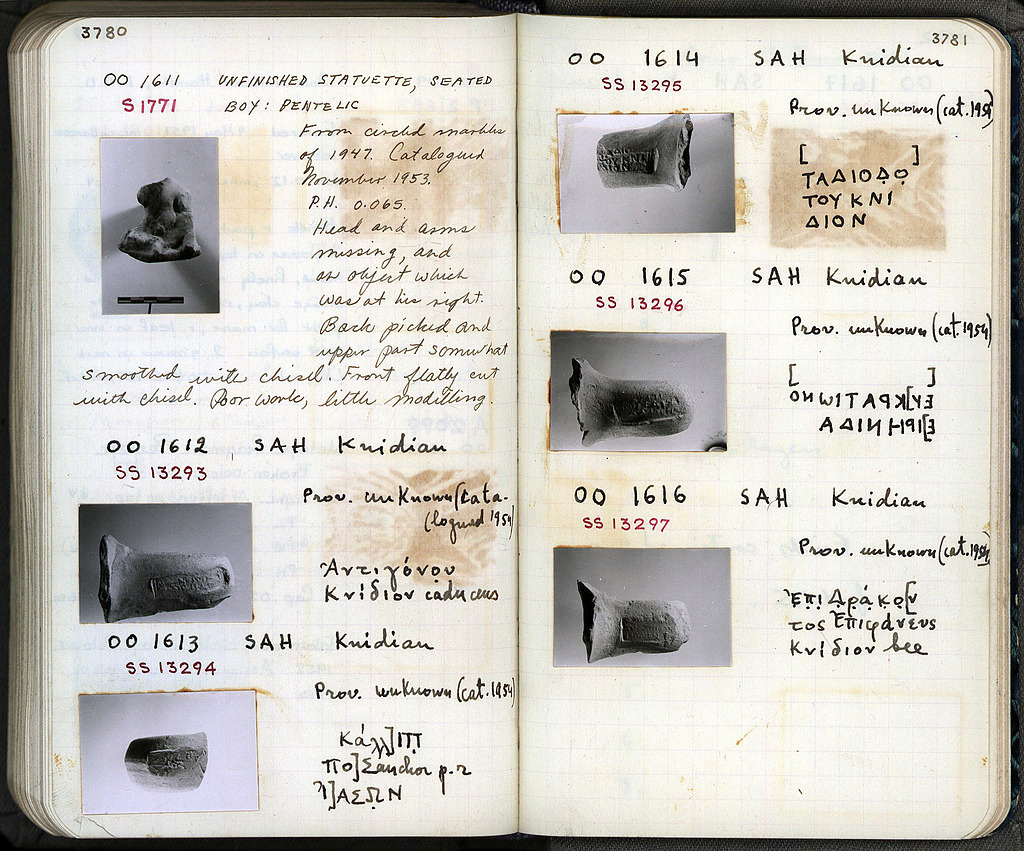 3780
OO 1611 UNFINISHED STATUETTE, SEATED
S 1771 BOY: PENTELIC
From circled marbles
of 1947. Catalogued
November 1953.
P.H. 0.065.
Head and arms
missing, and
an object which
was at his right.
Back picked and
upper part somewhat
smoothed with chisel. Front flatly cut
with chisel. Poor work, little modelling.
OO 1612 SAH Knidian
SS 13293
Prov. unknown (cata-
logued 1954)
Ἀντιγόνου
Κνίδιον caduceus
OO 1613 SAH Knidian
SS 13294
Prov. unknown (cat. 1954)
Κάλλ]ΙΠ
ΠΟ]Σ anchor p. r.
Ἰ]ΑΣΩΝ
3781
OO 1614 SAH Knidian
SS 13295
Prov. unknown (cat. 1954)
[ ]
ΤΑΔΙΟΔΟ
ΤΟΥΚΝΙ
ΔΙΟΝ
OO 1615 SAH Knidian
SS 13296
Prov. unknown (cat. 1954)
[ ]
OO 1616 SAH Knidian
SS 13297
Prov. unknown (cat. 1954)
Ἐπὶ Δράκο[ν
τος Ἐπιφάνευς
Κνίδιον bee